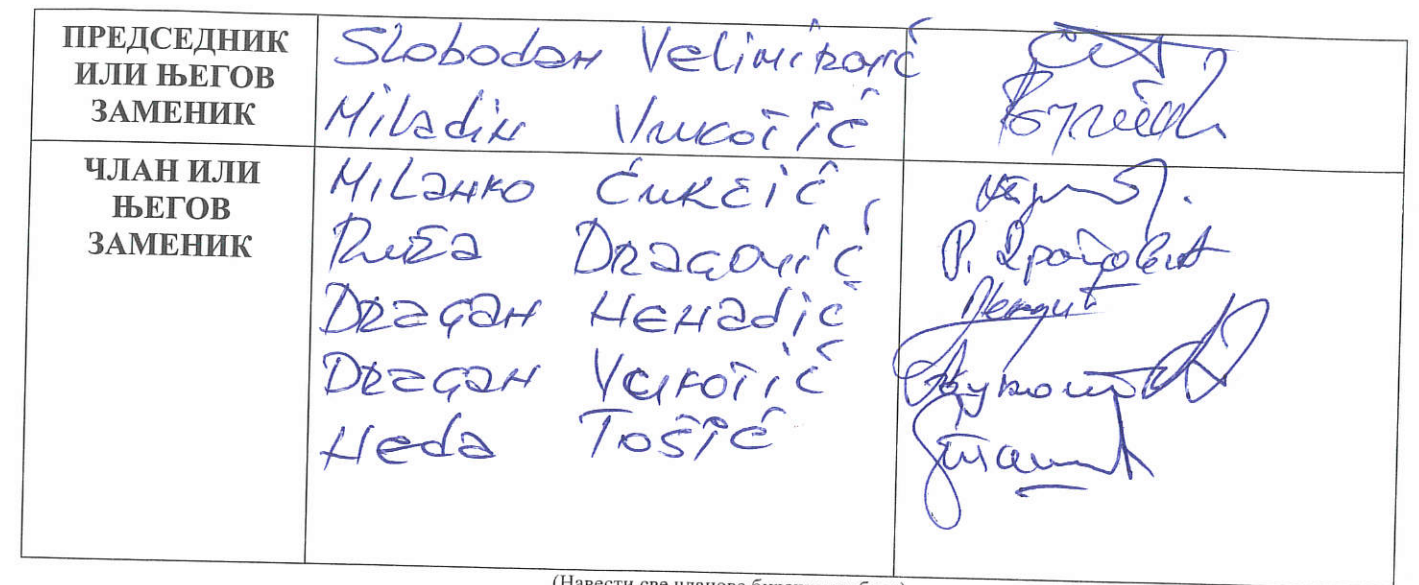 ПРЕДСЕДНИК
ИЛИ ЊЕГОВ
ЗАМЕНИК
Slobodan Velimirović
Miladin Vukotić
ЧЛАН ИЛИ
ЊЕГОВ
ЗАМЕНИК
Milanko Ćukeić
Ruža Dragović
Dragan Nenadić
Dragan Vukotić
Neda Tošić
(Навести све чланове бирачког одбора)